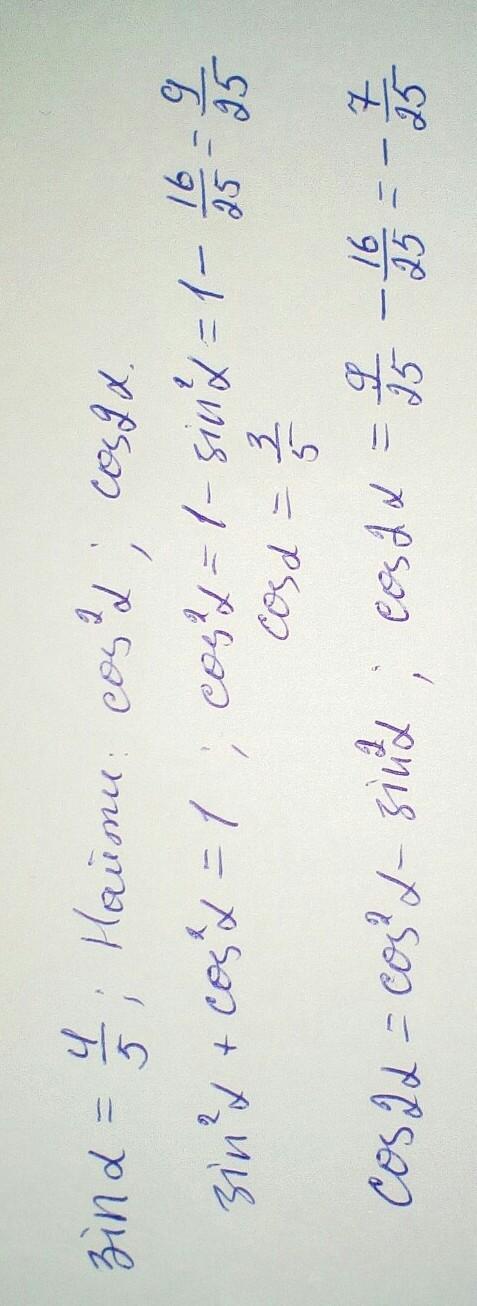 sin α = 4/5; Найти: cos²α; cos2α.
sin²α + cos²α = 1; cos²α = 1 - sin²α = 1 - 16/25 = 9/25
cosα = 3/5
cos2α = cos²α - sin²α; cos2α = 9/25 - 16/25 = - 7/25